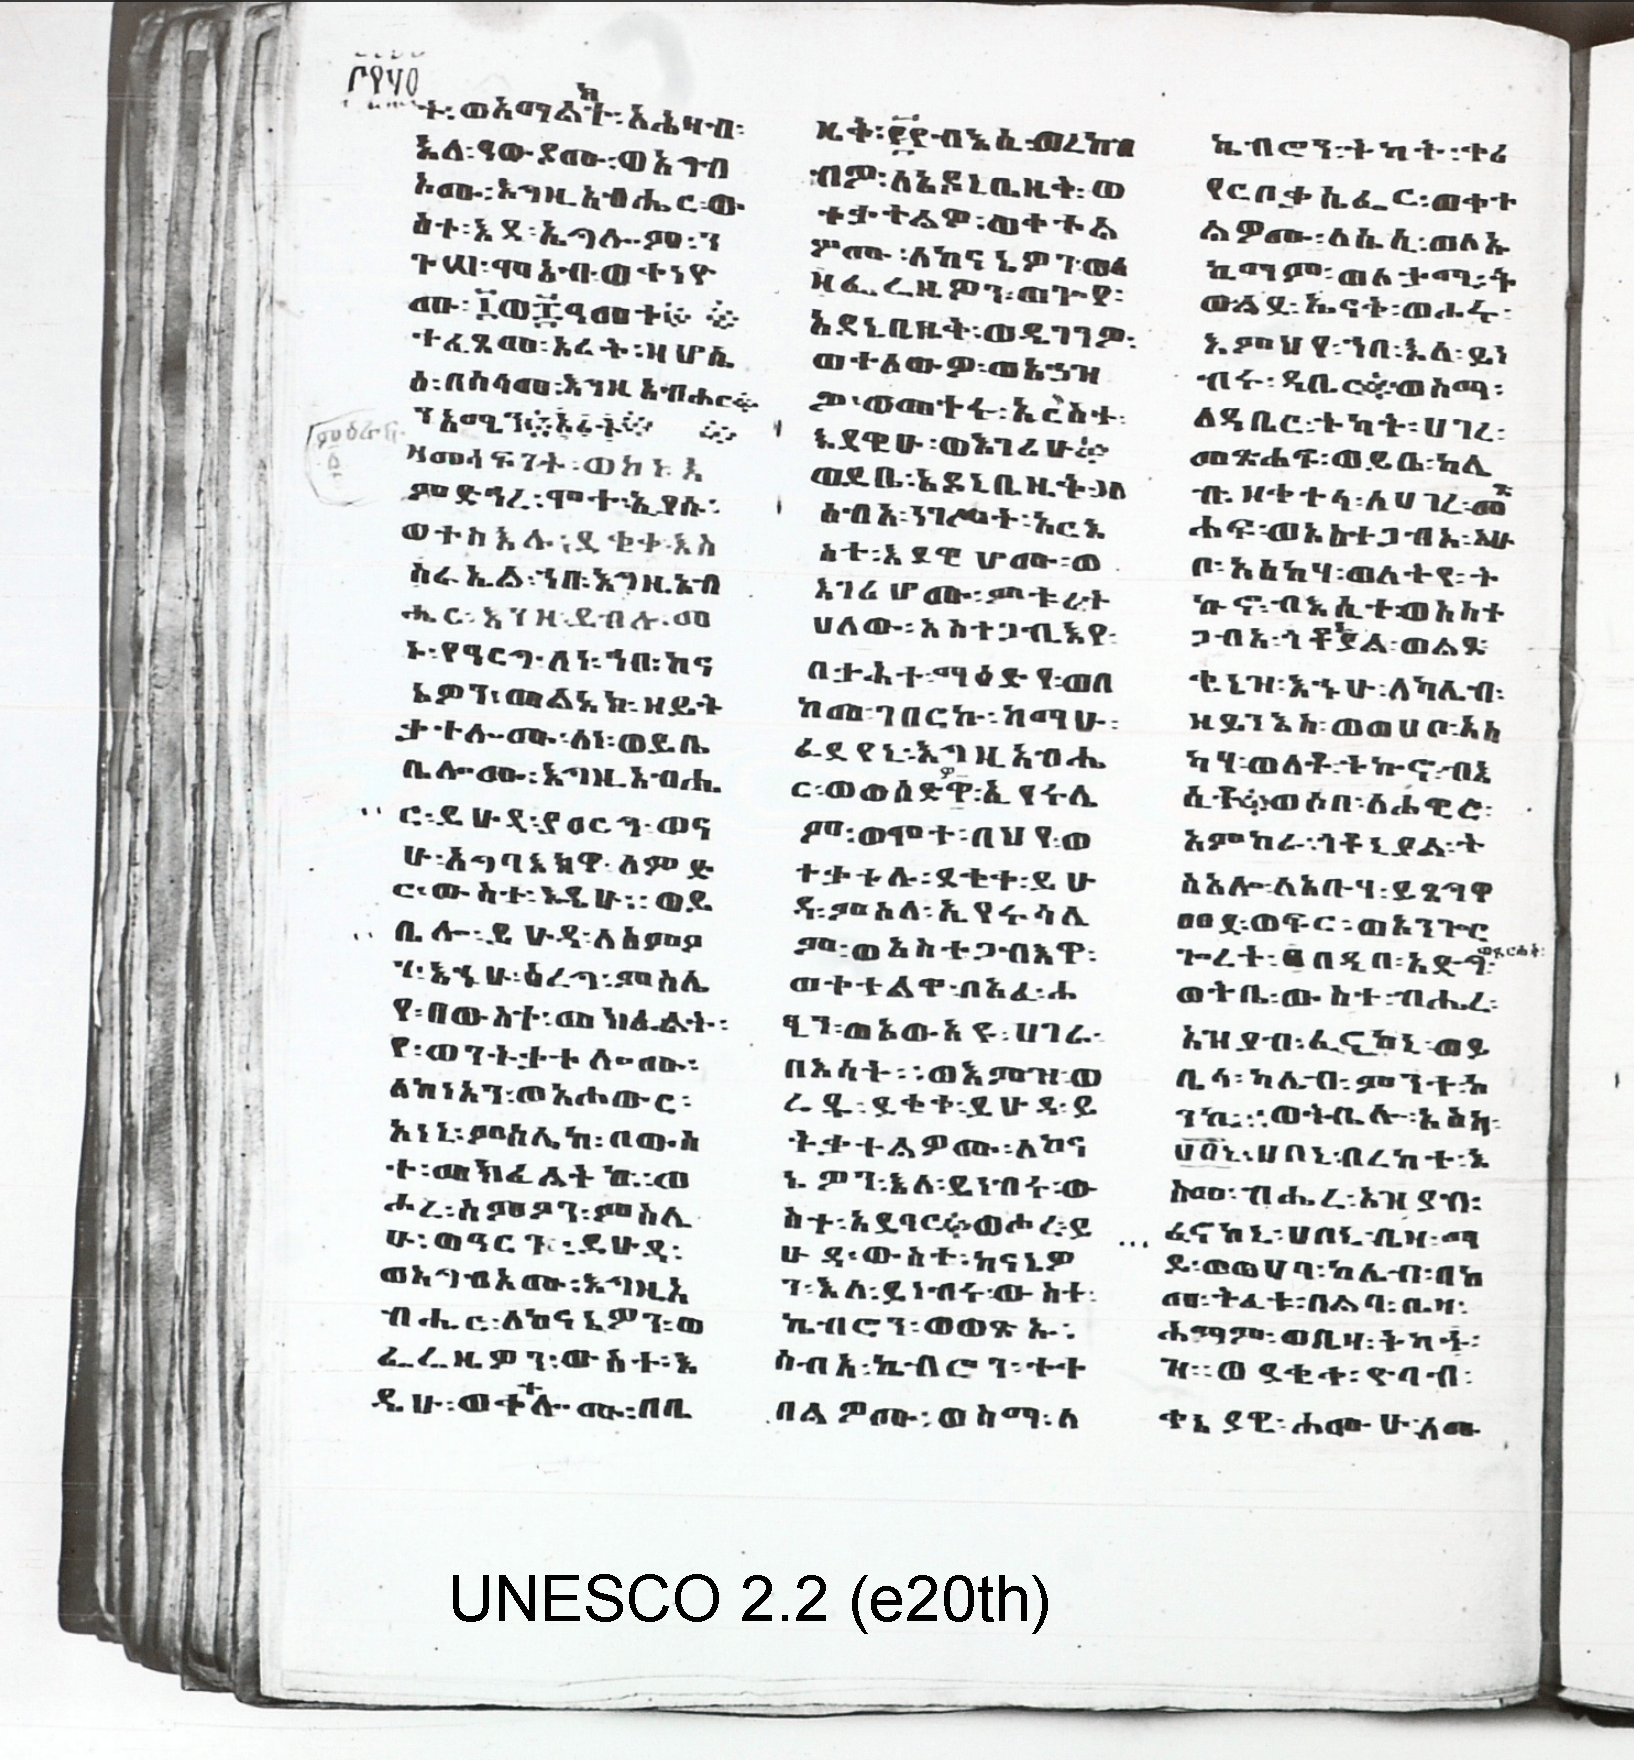 ት፡ወአማልክት፡አሕዛብ፡
እለ፡ዓውዶሙ፡ወአግብ
ኦሙ፡እግዚአብሔር፡ው
ስተ፡እደ፡ኤግሎም፡ን
ጉሠ፡ሞአብ፡ወተነዮ
ሙ፡፲ወ፰ዓመተ።
ተፈጸመ፡ኦሪት፡ዘሆሴ
ዕ፡በሰላመ፡እግዚአብሔር።
ዘመሳፍንት፡ወከነ፡እ
ምድኅረ፡ሞተ፡ኢያሱ፡
ወተስእሉ፡ደቂቀ፡እስ
ራኤል፡ኀበ፡እግዚአብ
ሔር፡እንዘ፡ይብሉ፡መ
ኑ፡የዓርግ፡ለነ፡ኀበ፡ከና
ኔዎን፡መልአከ፡ዘይት
ቃተሎሙ፡ለነ፡ወይቤ
ቤሎሙ፡እግዚአብሔ
ር፡ይሁዳ፡ያዐርግ፡ወና
ሁ፡አግባእክዋ፡ለምድ
ር፡ውስተ፡እዴሁ፡፡ወይ
ቤሎ፡ይሁዳ፡ለስምዖ
ን፡እኁሁ፡ዕረግ፡ምስሌ
የ፡በውስተ፡መክፈልት፡
የ፡ወንትቃተሎሙ፡
ለከነአን፡ወአሐውር፡
አነኒ፡ምስሌከ፡በውስ
ተ፡መክፈልትከ፡፡ወ
ሖረ፡ስምዖን፡ምስሌ
ሁ፡ወዓርገ፡ይሁዳ፡
ወአግብአሙ፡እግዚአ
ብሔር፡ለከናኔዎን፡ወ
ፌሬዜዎን፡ውስተ፡እ
ዴሁ፡ወቀተሎሙ፡በቤ
ዜቅ፡፻፻ብእሲ፡ወረከብ
ብም፡ለአዶኒቤዜቅ፡ወ
ተቃተልዎ፡ወቀተል
ምሙ፡ለከናኔዎን፡ወፈ
አዶኒቤዜቅ፡ወዴገንም፡
ወተለውዎ፡ወአኀዝ
ዎ፡ወመተሩ፡አርእስተ፡
እደዊሁ፡ወእገሪሁ።
ወይቤ፡አዶኒቤዜቅ፡
እስተ፡እደዊሆሙ፡ወ
እገሪሆሙ፡ምቱራት
ሀለው፡አስተጋቢእየ፡
በታሕተ፡ማዕድየ፡ወበ
ከመ፡ገበርኩ፡ከማሁ፡
ፈደየኒ፡እግዚአብሔ
ር፡ወወሰድዎ፡ኢየሩሳሌ
ም፡ወሞተ፡በህየ፡ወ
ተቃተሉ፡ደቂቀ፡ይሁ
ዳ፡ምስለ፡ኢየሩሳሌ
ም፡ወአስተጋብእዋ፡
ወቀተልዋ፡በአፈ፡ሐ
ፂን፡ወአውአዩ፡ሀገራ፡
በእሳት፡፡ወእምዝ፡ወ
ረዱ፡ደቂቀ፡ይሁዳ፡ይ
ትቃተልዎሙ፡ለከና
ኔዎን፡እለ፡ይነብሩ፡ው
ስተ፡አደባር።ወሖረ፡ይ
ሁዳ፡ውስተ፡ከናኔዎ
ን፡እለ፡ይነብሩ፡ውስተ፡
ኬብሮን፡ወወጽኡ፡
ሰብአ፡ኬብሮን፡ተቀ
በልዎሙ፡ወስማ፡ለ
ኬብሮን፡ትካት፡ቀሪ
የርቦቃሴፌር፡ወቀተ
ልዎሙ፡ለሴሲ፡ወለኡ
ኪማም፡ወለታማ፡ት
ውልደ፡ኤናቅ፡ወሖሩ፡
እምህየ፡ኀበ፡እለ፡ይነ
ብሩ፡ዳቤር።ወስማ፡
ለዳቤር፡ትካት፡ሀገረ፡
መጽሐፍ፡ወይቤ፡ካሌ
ብ፡ዘቀተላ፡ለሀገረ፡መጽ
ሐፍ፡ወአስተጋብአ፡እሁ
ቦ፡አስካሃ፡ወለተየ፡ት
ኩኖ፡ብእሲተ፡ወአስተ
ጋብአ፡ጎቶንያል፡ወልደ፡
ቄኔዝ፡እኁሁ፡ለካሌብ፡
ዘይንእስ፡ወወሀቦ፡አስ
ካሃ፡ወለቶ፡ትኩኖ፡ብእ
ሲቶ።ወሶበ፡ሰሐዊሮ፡
አምከራ፡ጎቶኒያል፡ት
ስአሎ፡ለአቡሃ፡ይጸግዋ
ጐረት፡
ወትቤ፡ውስተ፡ብሔረ፡
አዜብ፡ፈኖከኒ፡ወይ
ቤላ፡ካሌብ፡ምንተ፡አ
ንኪ፡፡ወትቤሎ፡አስክ
ሀበኒ፡ሀበኒ፡በረከተ፡እ
ስመ፡ብሔረ፡አዜብ፡
ፈኖከኒ፡ሀበኒ፡ቤዛ፡ማ
ይ፡ወወሀባ፡ካሌብ፡በከ
መ፡ትፈቱ፡በልባ፡ቤዛ፡
ሕማም፡ወቤዛ፡ትካት፡
ዝ፡፡ወደቂቀ፡ዮባብ፡
ቀኔያዊ፡ሐሙሁ፡ለሙ
UNESCO 2.2 (e20th)